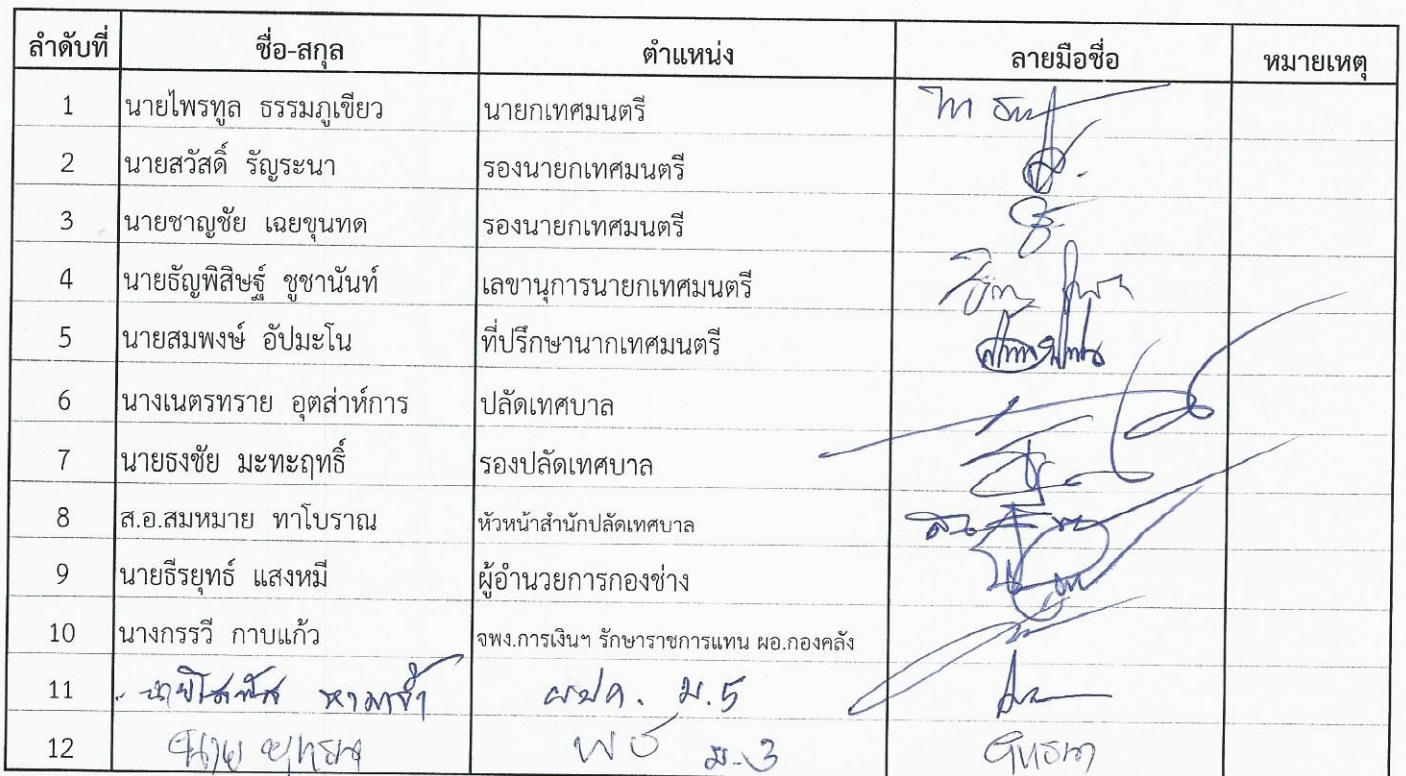 ลำดับที่ ชื่อ-สกุล ตำแหน่ง ลายมือชื่อ หมายเหตุ
1 นายไพรทูล ธรรมภูเขียว นายกเทศมนตรี
2 นายสวัสดิ์ รัญระนา รองนายกเทศมนตรี
3 นายชาญชัย เฉยขุนทด รองนายกเทศมนตรี
4 นายธัญพิสิษฐ์ ชูชานันท์ เลขานุการนายกเทศมนตรี
5 นายสมพงษ์ อัปมะโน ที่ปรึกษานากเทศมนตรี
6 นางเนตรทราย อุตส่าห์การ ปลัดเทศบาล
7 นายธงชัย มะทะฤทธิ์ รองปลัดเทศบาล
8 ส.อ.สมหมาย ทาโบราณ หัวหน้าสำนักปลัดเทศบาล
9 นายธีรยุทธ์ แสงหมี ผู้อำนวยการกองช่าง
10 นางกรรวี กาบแก้ว จพง.การเงินฯ รักษาราชการแทน ผอ.กองคลัง
11 ม.5
12 นาย ม.3